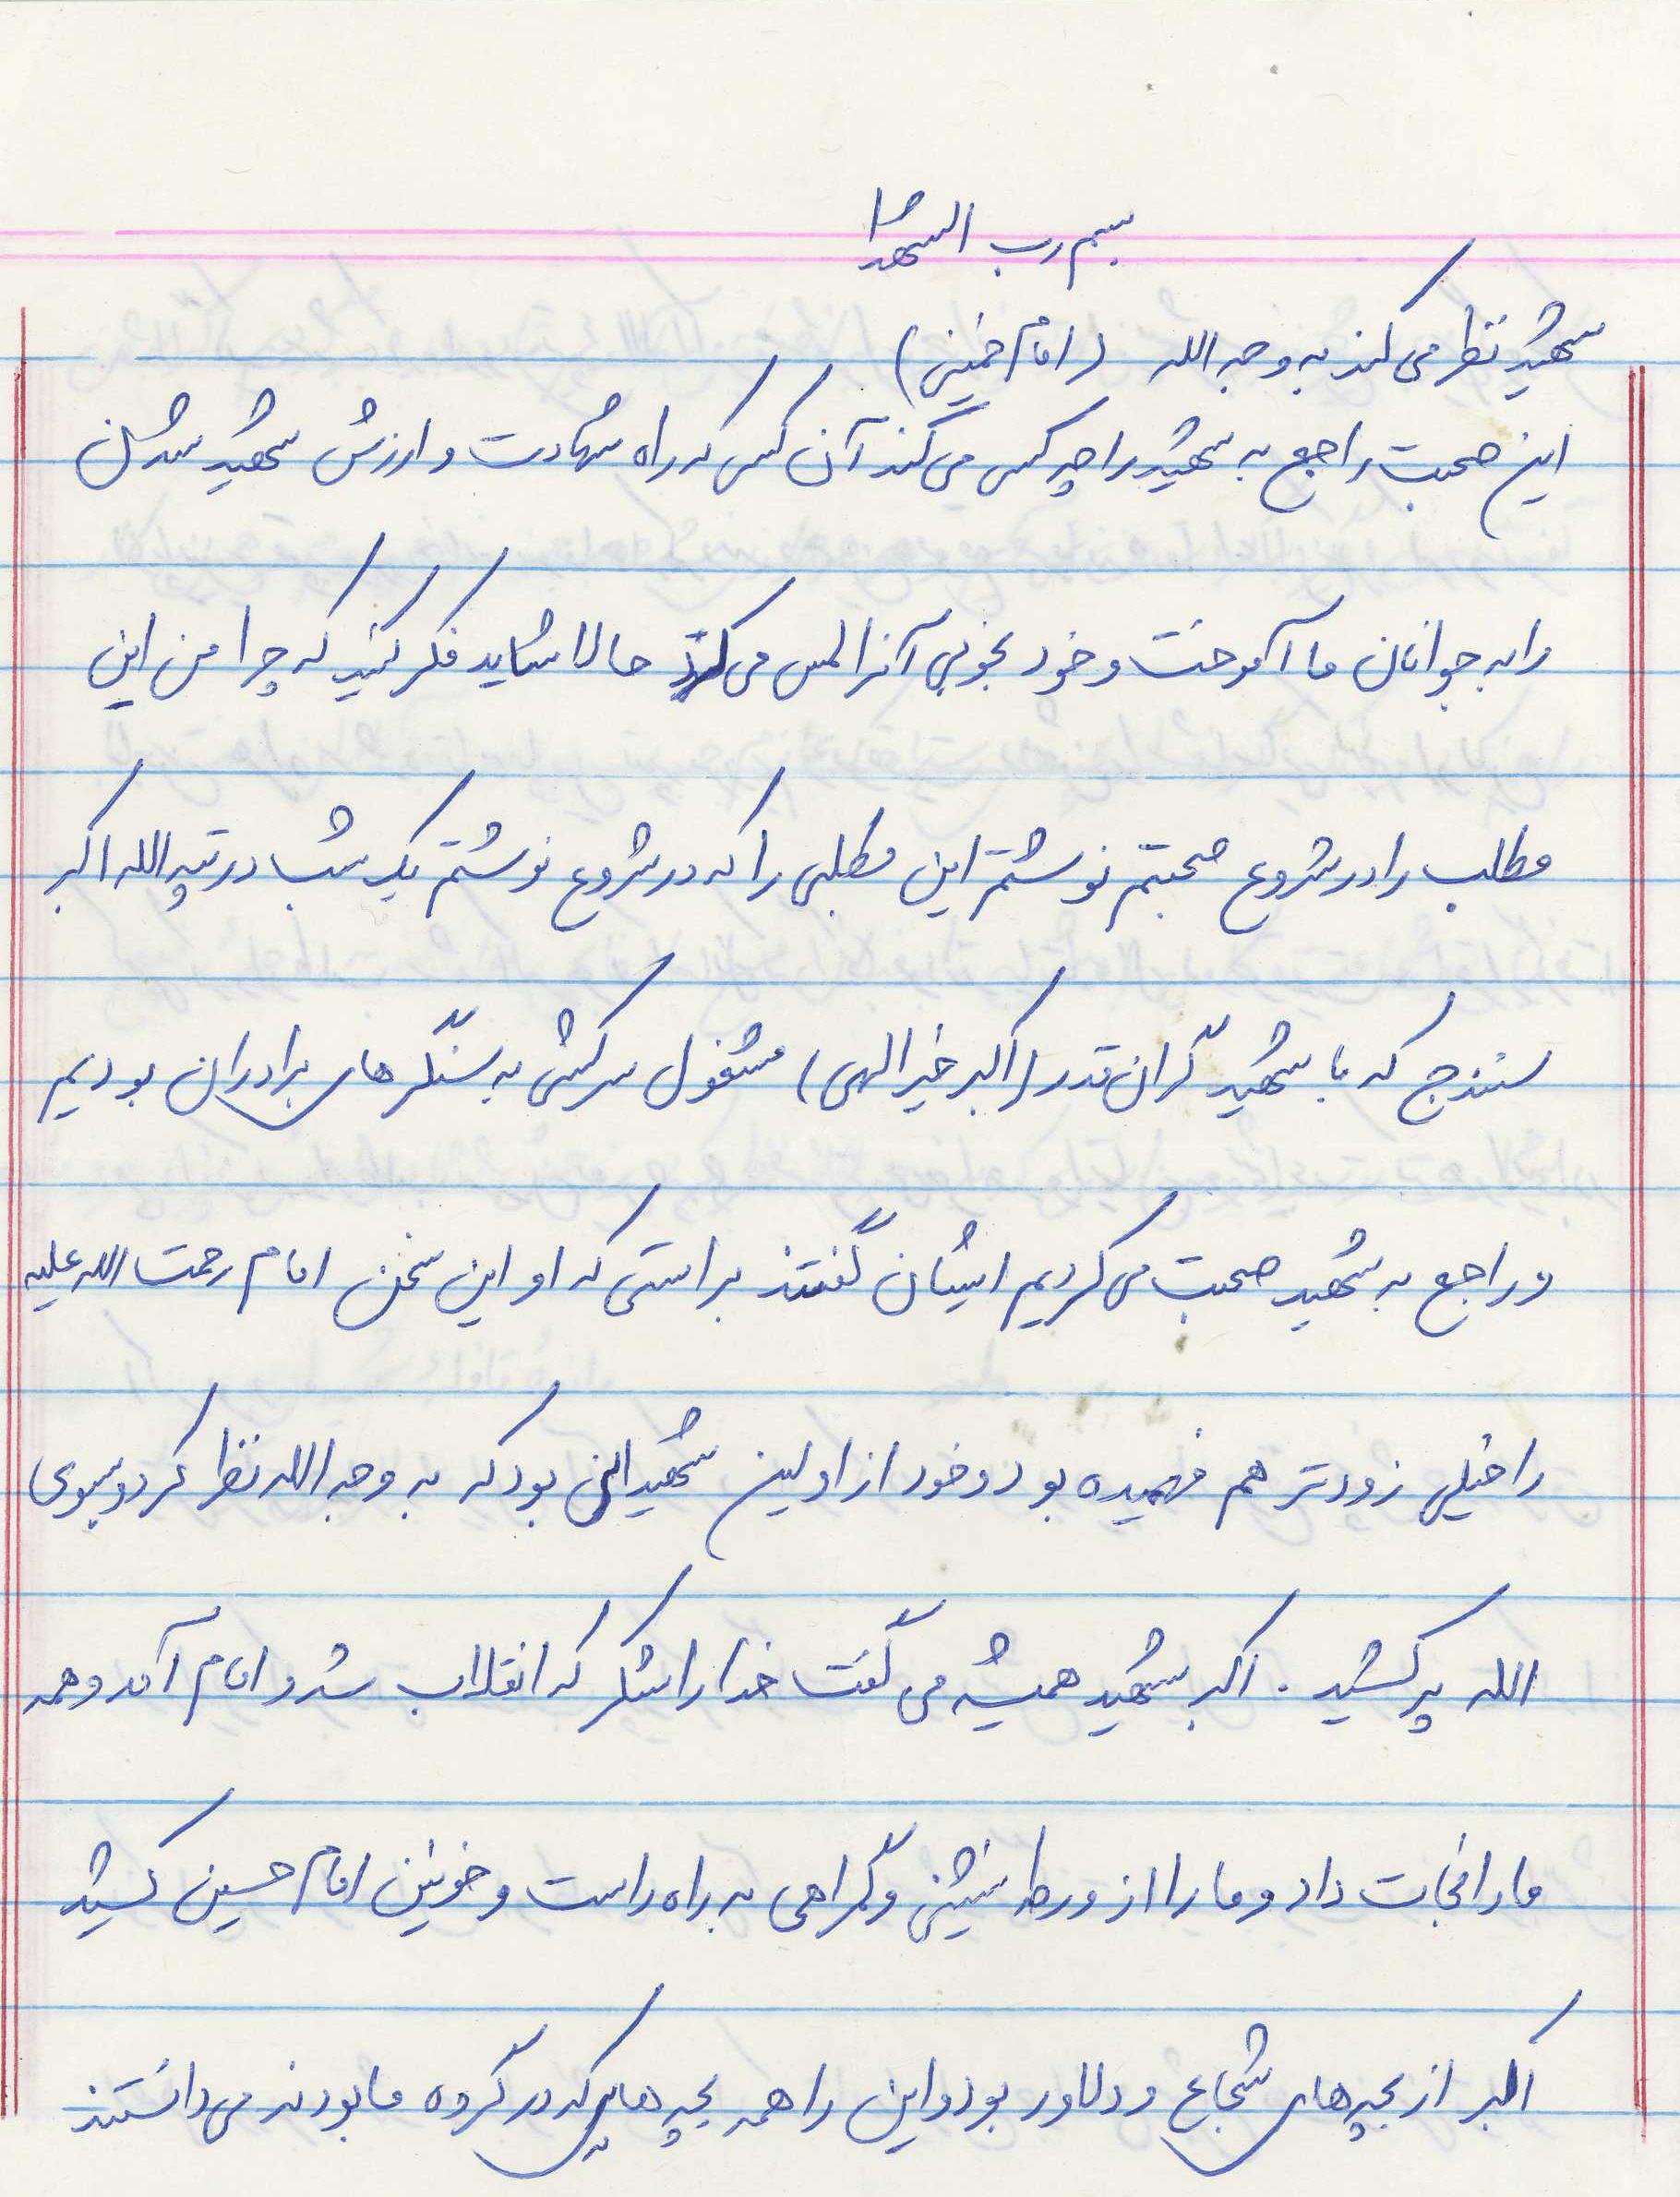 بسم رب الشهدا
شهید نظر می کند به وجه الله (امام خمینی)
این صحبت راجع به شهید را چه کسی می کند آن کسی که راه شهادت و ارزش شهید شدن
را به جوانان ما آموخت و خود بخوبی آنرا لمس می کرد حالا شاید فکر کنید که چرا من این
مطلب را در شروع صحبتم نوشتم این مطلبی را که در شروع نوشتم یک شب در تپه الله اکبر
سنندج که با شهید گرانقدر (اکبر خیرالهی) مشغول سرکشی به سنگرهای برادران بودیم
و راجع به شهید صحبت می کردیم ایشان گفتند براستی که او این سخن امام رحمت الله علیه
را خیلی زودتر هم فهمیده بود و خود از اولین شهیدانی بود که به وجه الله نظر کرد و بسوی
الله پر کشید . اکبر شهید همیشه می گفت خدا را شکر که انقلاب شد و امام آمد و همه
ما را نجات داد و ما را از ورطه نیستی و گمراهی به راه راست و خونین امام حسین کشید
اکبر از بچه های شجاع و دلاور بود و این را همه بچه هایی که در گروه ما بودند می دانستند